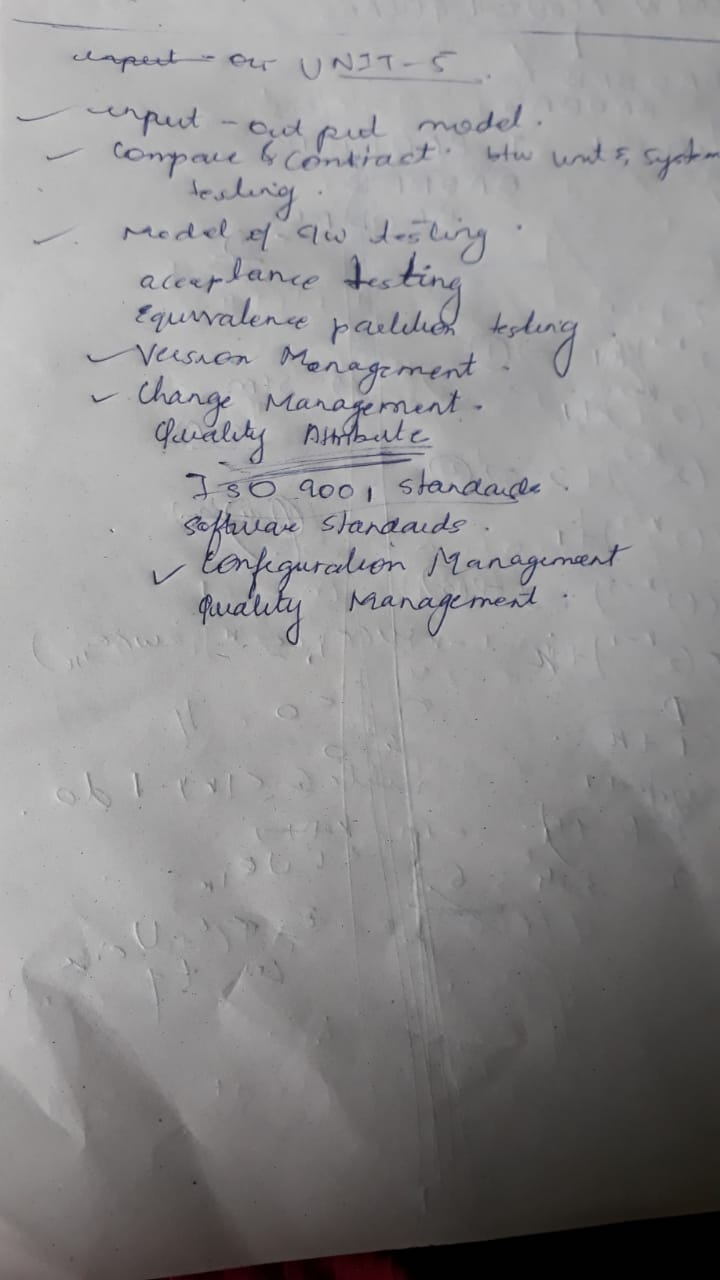 UNIT-5
input - out put model.
Compare & Contract. btw unit &, system
testing.
Model of sw testing.
acceptance testing
Equivalence partition testing.
Version Management.
Change Management.
Quality Attribute
ISO 9001 standards.
Software standards.
Configuration Management
Quality Management.